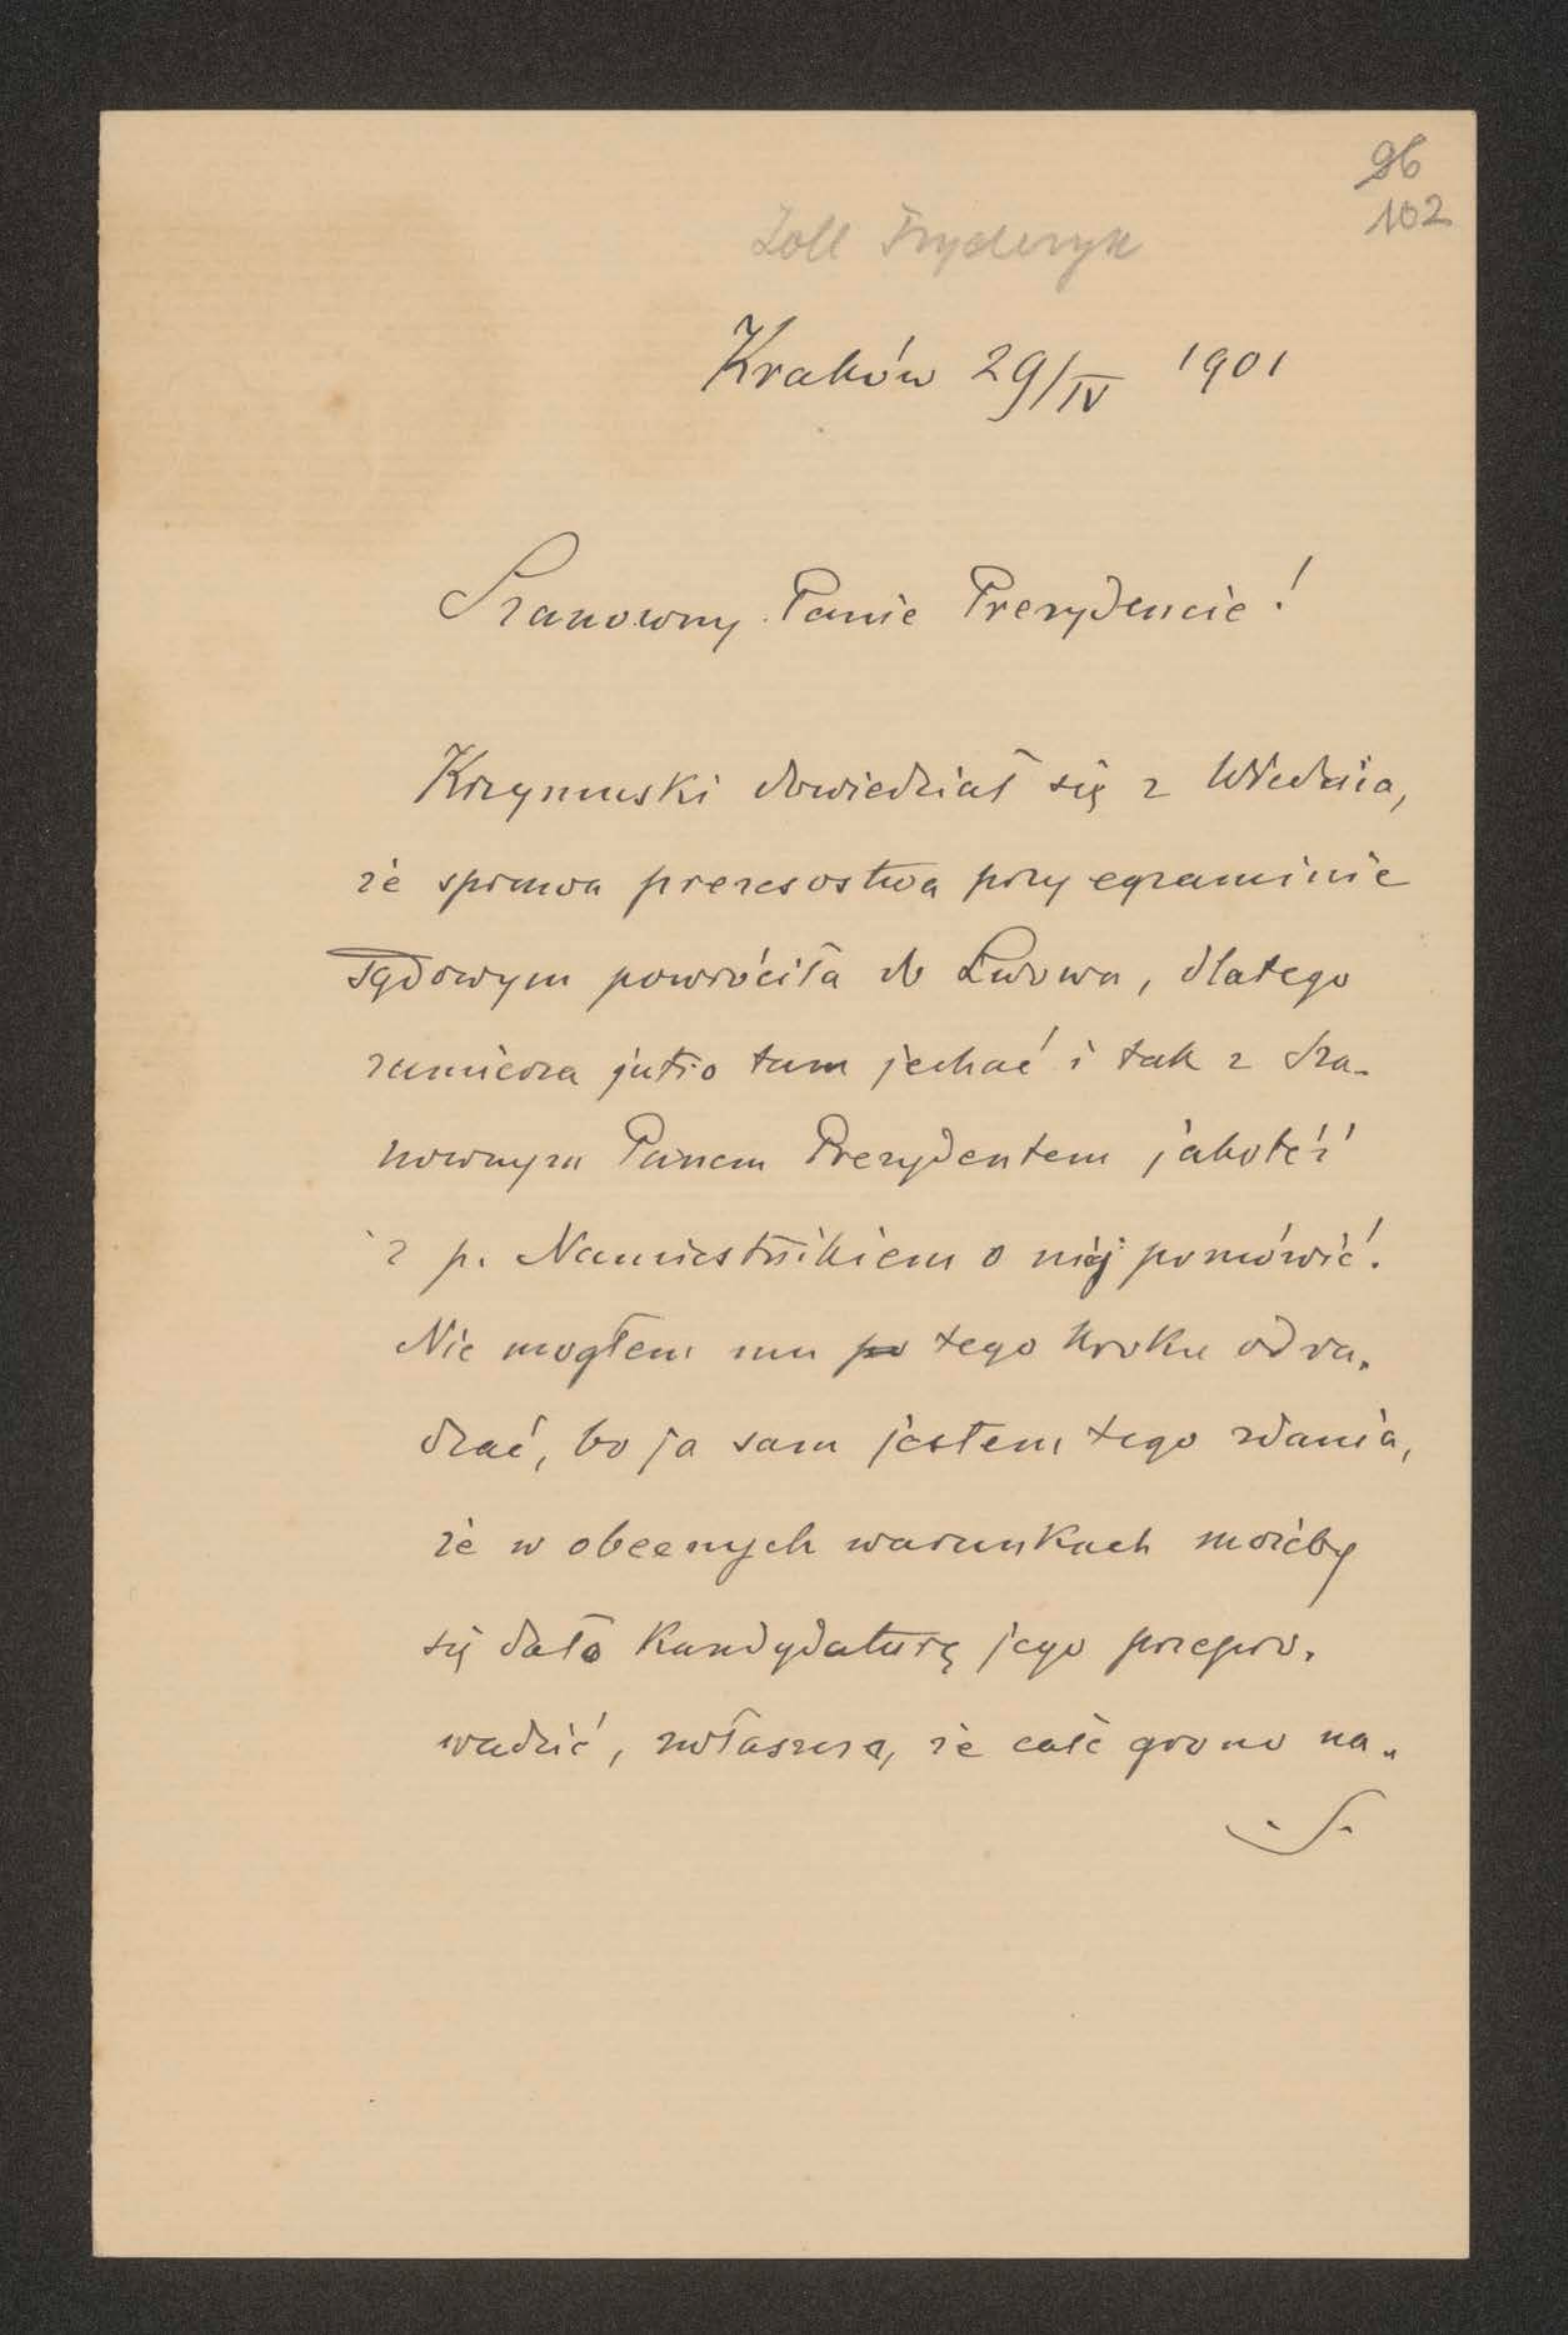 96
102
Zoll Fryderyk
Kraków 29/IV 1901
Szanowny Panie Prezydencie!
Krzymuski dowiedział się z Wiednia,
że sprawa prezesostwa przy egzaminie
sądowym powróciła do Lwowa, dlatego
zamierza jutro tam jechać i tak z Sza-
nownym Panem Prezydentem jakoteż
z p. Namiestnikiem o niéj pomówić.
Nie mogłem mu po tego kroku odra-
dzać, bo ja sam jestem tego zdania,
że w obecnych warunkach możeby
się dało kandydaturę jego przepro-
wadzić, zwłaszcza, że całe grono na-